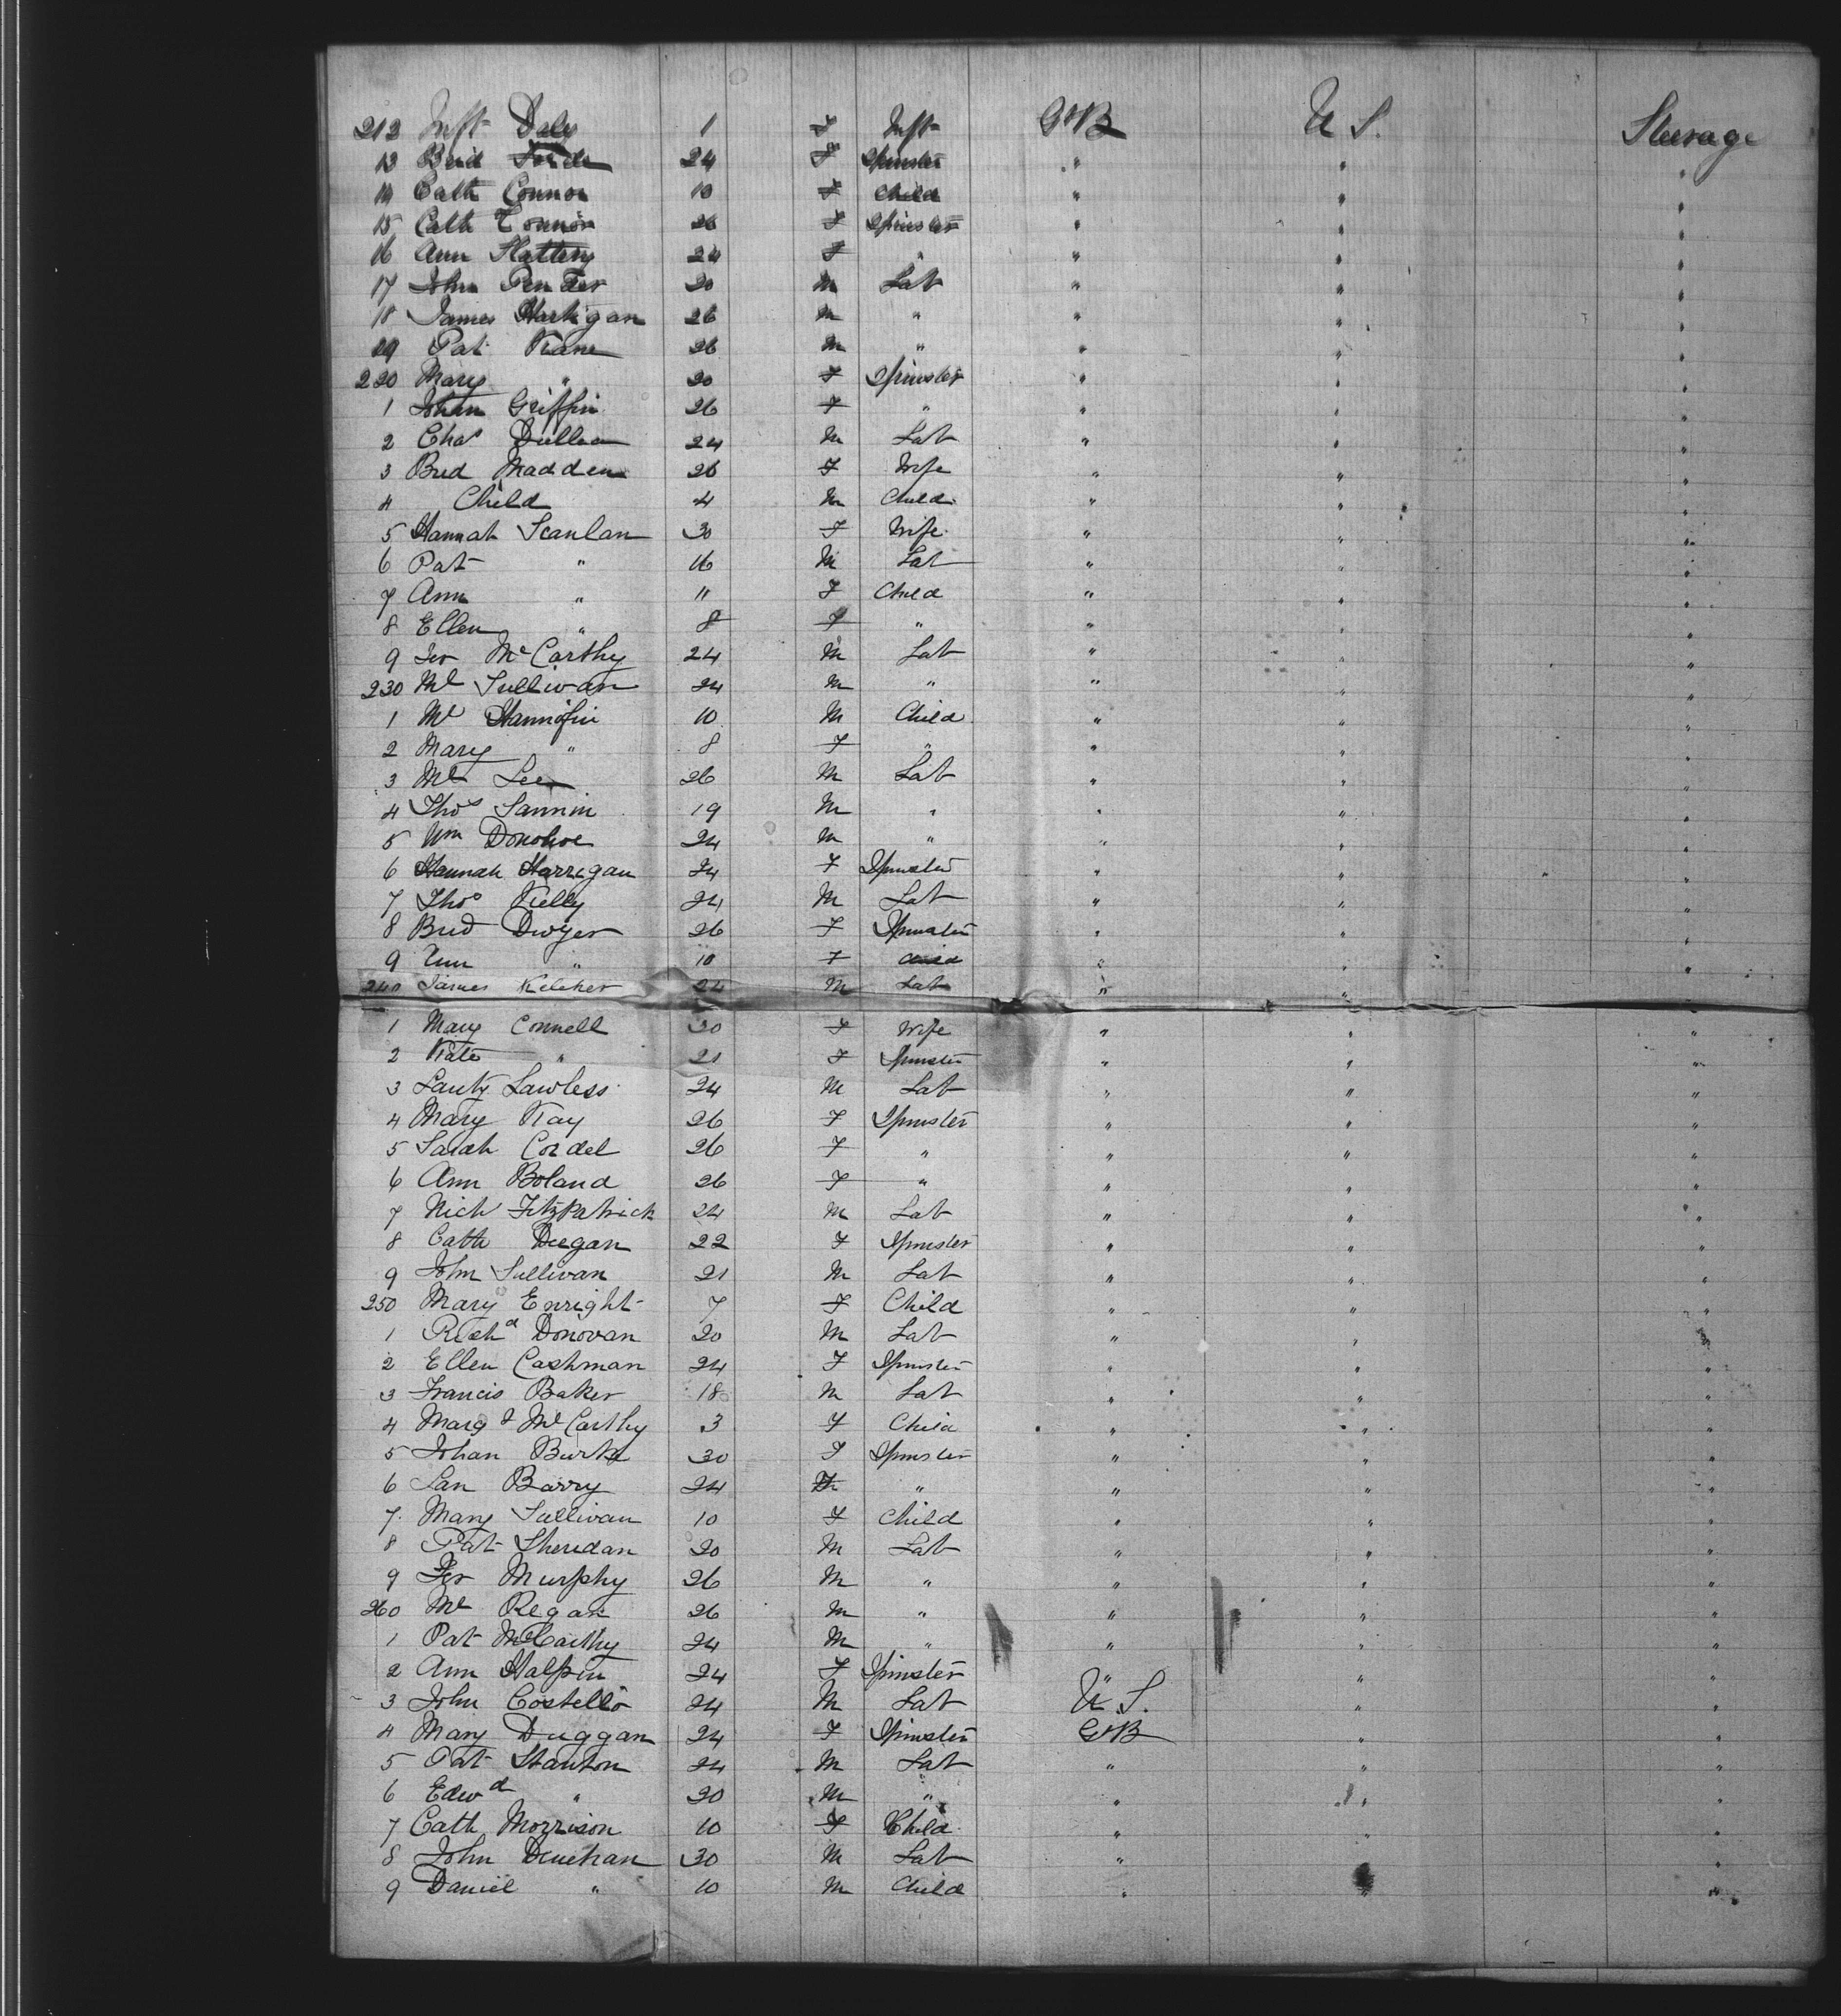 212 Inft Daly 1 F Inft GtB U S. Steerage
13 Brid Forde 24 F Spinster " " "
14 Cath Connor 10 F Child " " "
15 Cath Connor 26 F Spinster " " "
16 Ann Slattery 24 F " " " "
17 John 20 M Lab " " "
18 James Hartigan 26 M " " " "
19 Pat Kane 26 M " " " "
220 Mary " 20 F Spinster " " "
1 Johan Griffin 26 F " " " "
2 Chas 24 M Lab " " "
3 Brid Madden 26 F Wife " " "
4 Child 4 M Child " " "
5 Hannah Scanlan 30 F Wife " " "
6 Pat " 16 M Lab " " "
7 Ann " 11 F Child " " "
8 Ellen " 8 F " " " "
9 Jer McCarthy 24 M Lab " " "
230 Ml Sullivan 24 M " " " "
1 Ml Hannifin 10 M Child " " "
2 Mary " 8 F " " " "
3 Ml Lee 26 M Lab " " "
4 Thos 19 M " " " "
5 Wm Donohoe 24 M " " " "
6 Hannah Harrigan 24 F Spinster " " "
7 Thos Kelly 24 M Lab " " "
8 Brid Dwyer 26 F Spinster " " "
9 Ann " 10 F Child " " "
240 James Keleher 24 M Lab " " "
1 Mary Connell 30 F Wife " " "
2 Kate " 21 F Spinster " " "
3 Lawless 24 M Lab " " "
4 Mary Kay 26 F Spinster " " "
5 Sarah Cordel 26 F " " " "
6 Ann Boland 26 F " " " "
7 Nich Fitzpatrick 24 M Lab " " "
8 Cath Deegan 22 F Spinster " " "
9 John Sullivan 21 M Lab " " "
250 Mary Enright 7 F Child " " "
1 Richd Donovan 20 M Lab " " "
2 Ellen Cashman 24 F Spinster " " "
3 Francis Baker 18 M Lab " " "
4 Margt McCarthy 3 F Child " " "
5 Johan Burke 30 F Spinster " " "
6 Barry 24 F " " " "
7 Mary Sullivan 10 F Child " " "
8 Pat Sheridan 20 M Lab " " "
9 Jer Murphy 26 M " " " "
260 Ml Regan 26 M " " " "
1 Pat McCarthy 24 M " " " "
2 Ann Halpin 24 F Spinster " " "
3 John Costello 24 M Lab U S. " "
4 Mary Duggan 24 F Spinster GtB " "
5 Pat Stanton 24 M Lab " " "
6 Edwd " 20 M " " " "
7 Cath Morrison 10 F Child " " "
8 John Denehan 30 M Lab " " "
9 Daniel " 10 M Child " " "